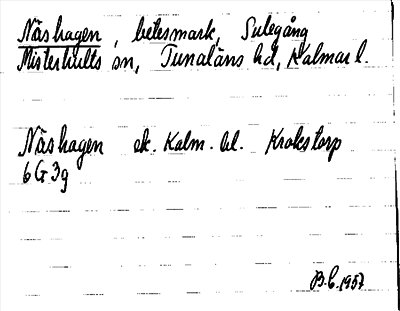 Näshagen, betesmark, Sulegång
Misterhults sn, Tunaläns hd, Kalmar l.
Näshagen ek. Kalm. bl. Krokstorp
6 G 3 g
B. C. 1957